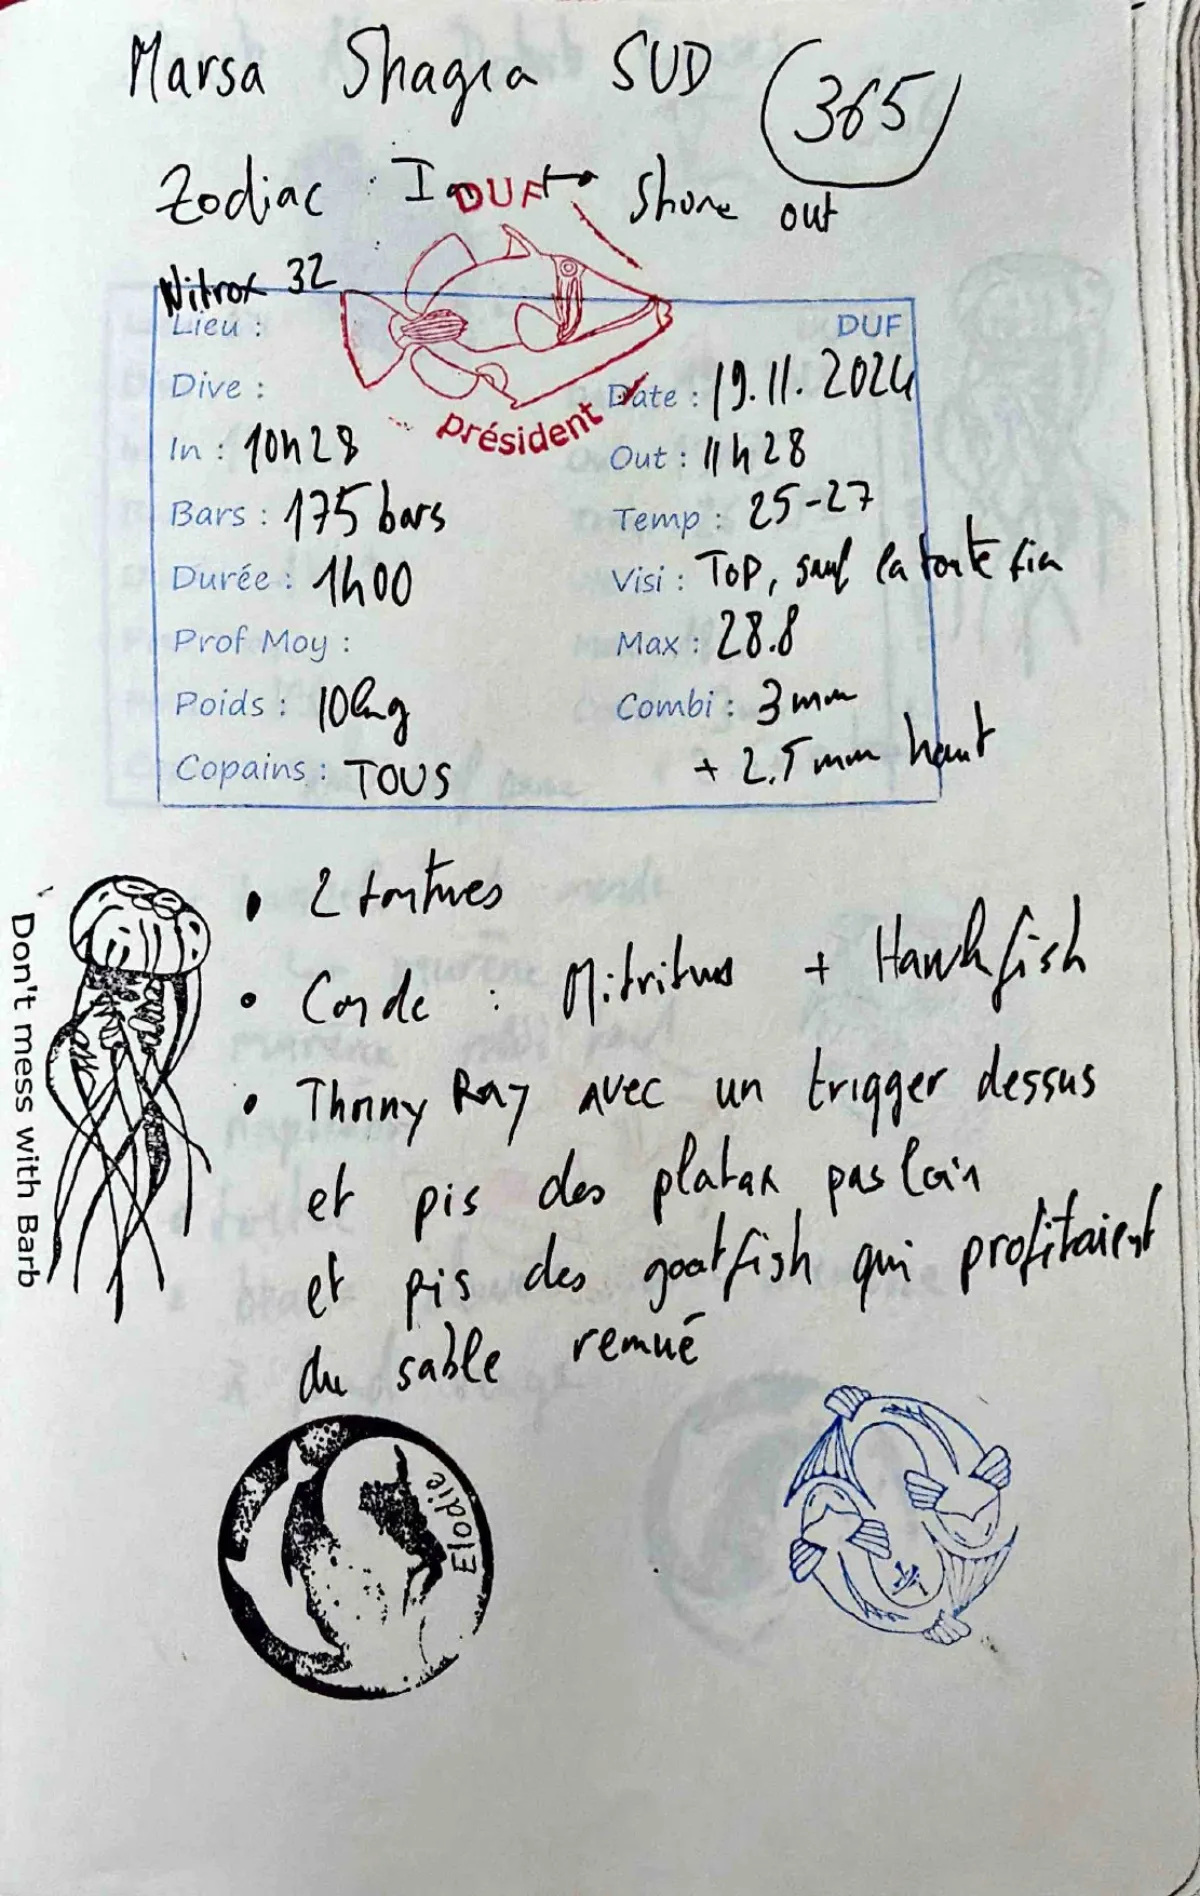 Marsa Shagra SUD 365
Zodiac In → Shore out
Nitrox 32
DUF
président
Lieu : DUF
Dive : Date : 19.11.2024
In : 10h28 Out : 11h28
Bars : 175 bars Temp : 25-27
Durée : 1h00 Visi : TOP, sauf la toute fin
Prof Moy : Max : 28.8
Poids : 10kg Combi : 3mm
Copains : TOUS + 2.5mm haut
Don't mess with Barb
• 2 tortues
• Corde : + Hawkfish
• Thorny Ray avec un trigger dessus
et pis des platax pas loin
et pis des goatfish qui profitaient
du sable remué
Elodie